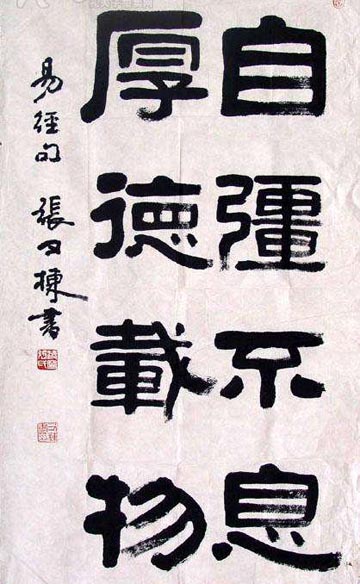 自彊不息
厚德載物
易經句 張又棟書